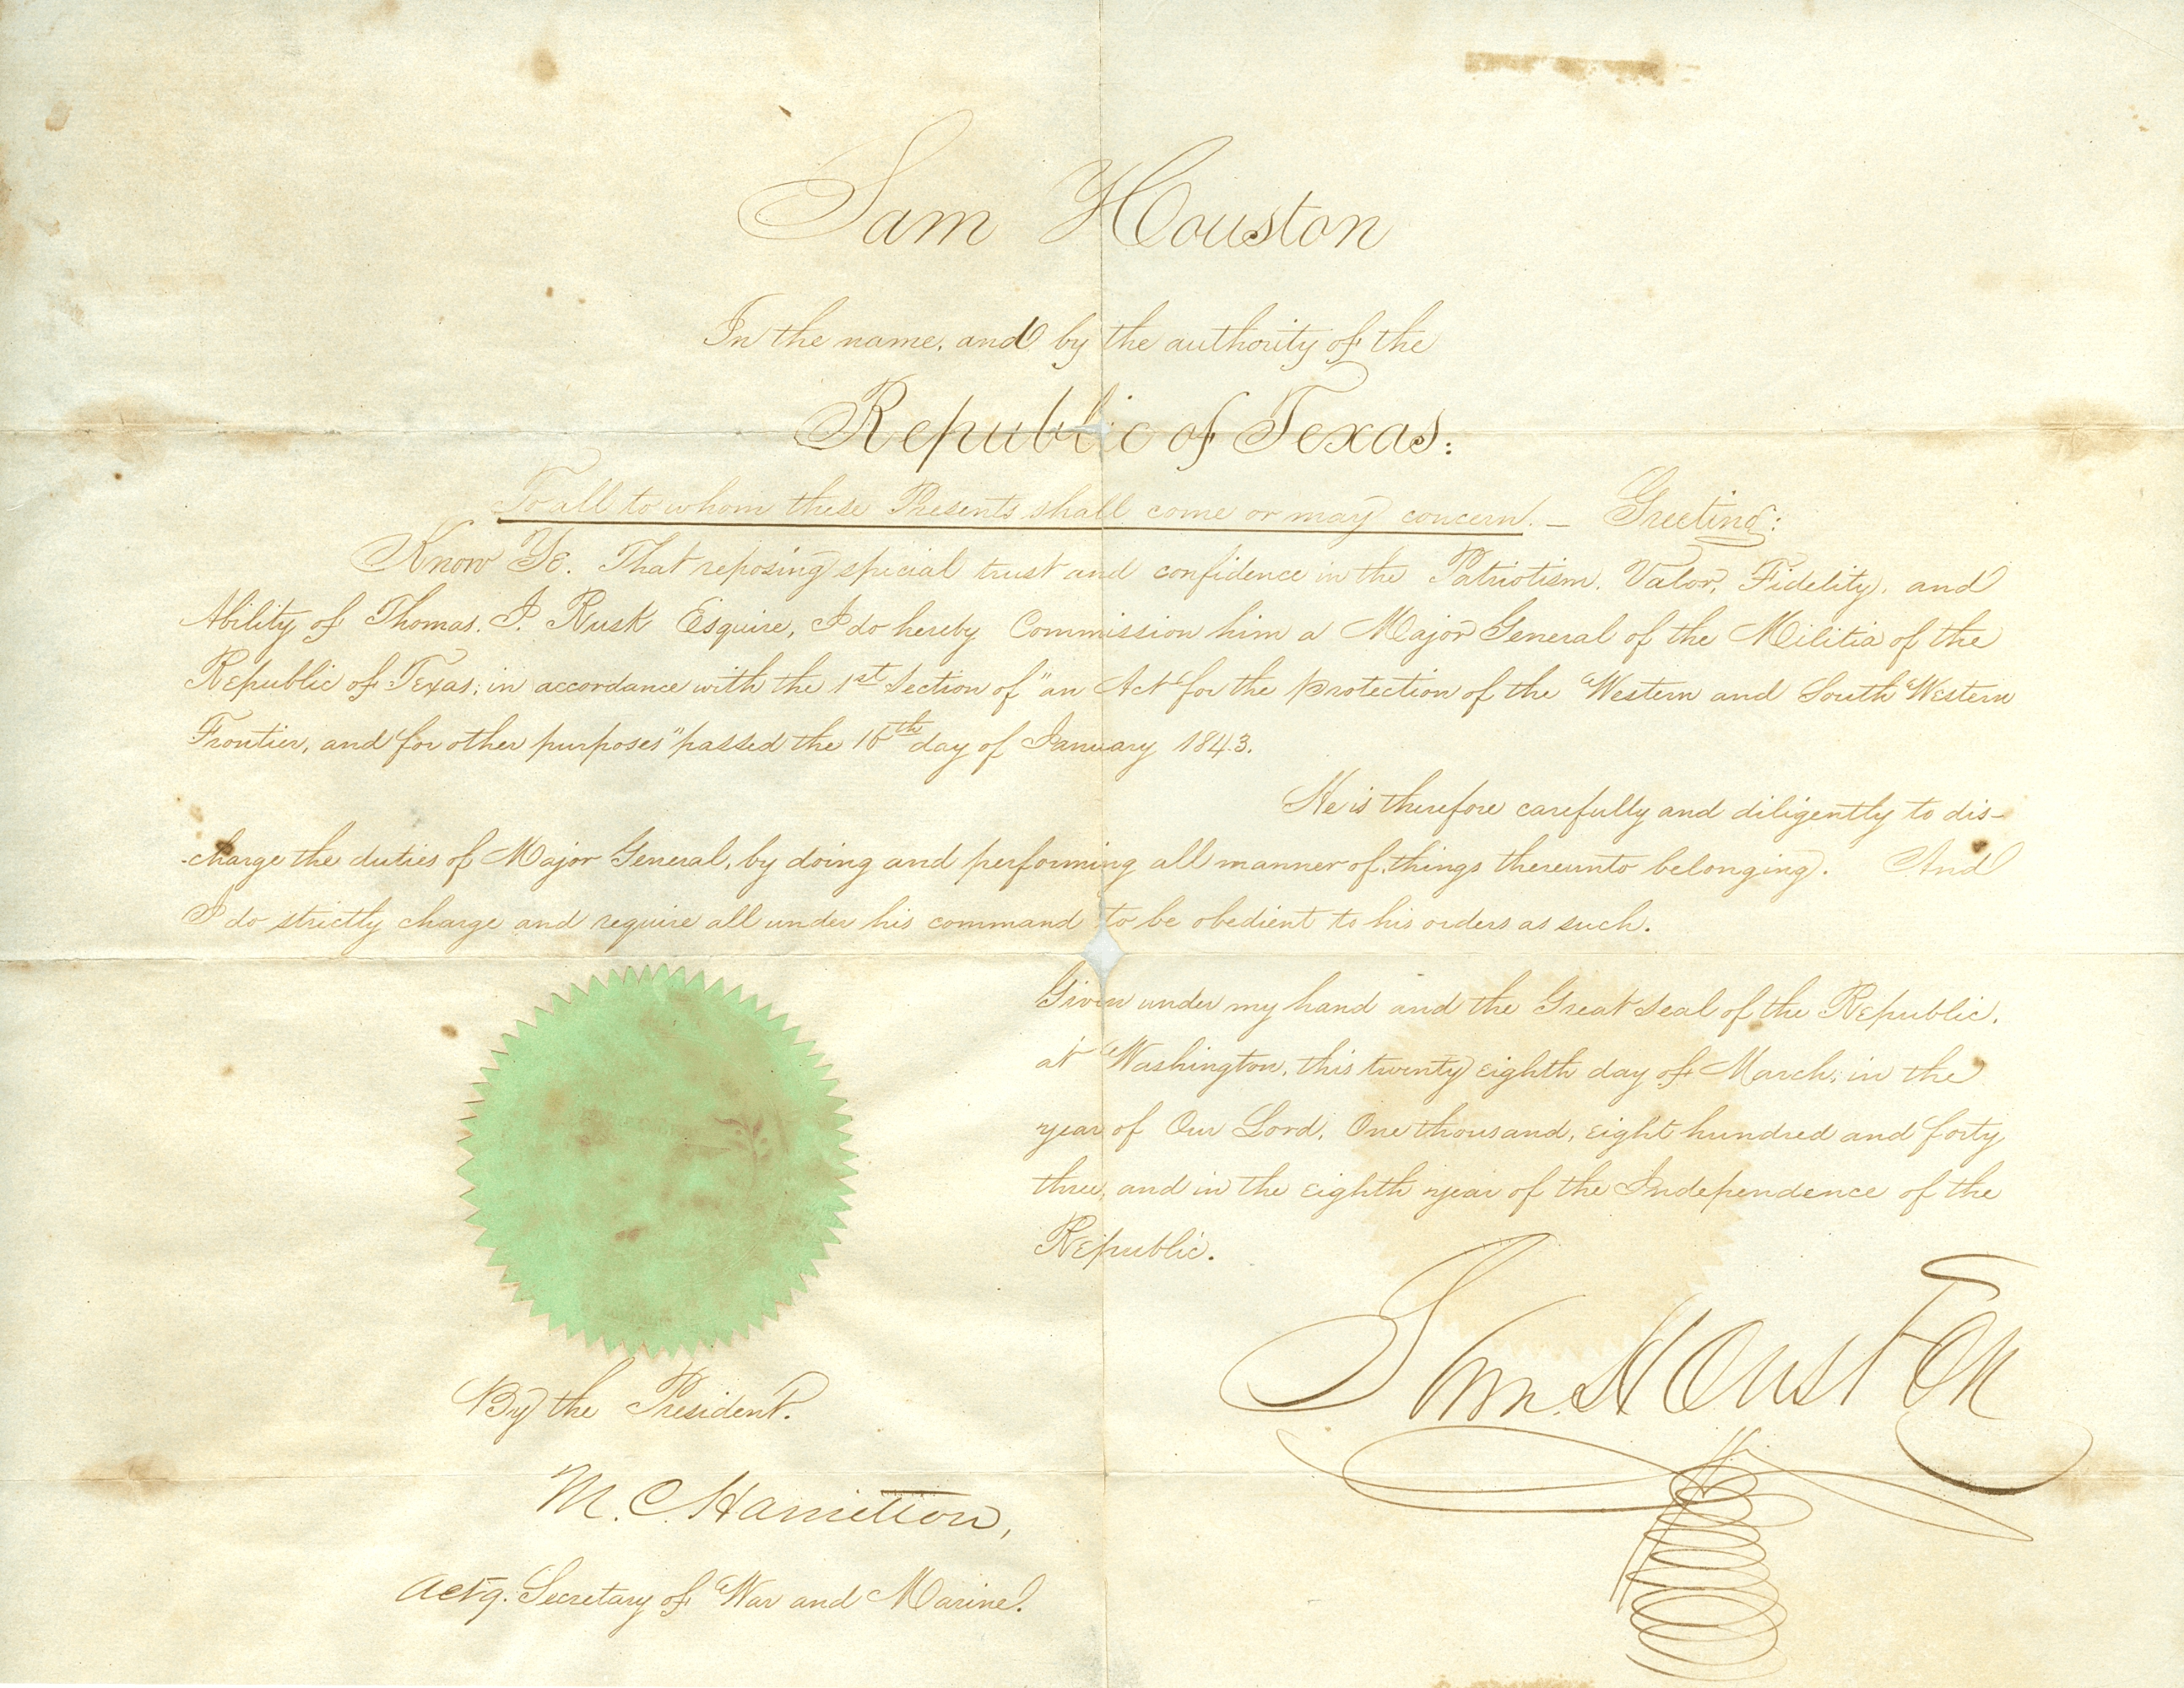 Sam Houston
In the name, and by the authority of the
Republic of Texas:
To all to whom these Presents shall come or may concern. — Greeting:
Know Ye. That reposing special trust and confidence in the Patriotism, Valor, Fidelity, and
Ability of Thomas. J. Rusk Esquire, I do hereby Commission him a Major General of the Militia of the
Republic of Texas; in accordance with the 1st Section of "an Act for the protection of the Western and South Western
Frontier, and for other purposes" passed the 16th day of January 1843.
He is therefore carefully and diligently to dis-
-charge the duties of Major General, by doing and performing all manner of things thereunto belonging. And
I do strictly charge and require all under his command to be obedient to his orders as such.
Given under my hand and the Great Seal of the Republic,
at Washington, this twenty eighth day of March, in the
year of Our Lord, One thousand, eight hundred and forty
three, and in the eighth year of the Independence of the
Republic.
Sam Houston
By the President.
M. C. Hamilton,
Actg. Secretary of War and Marine.